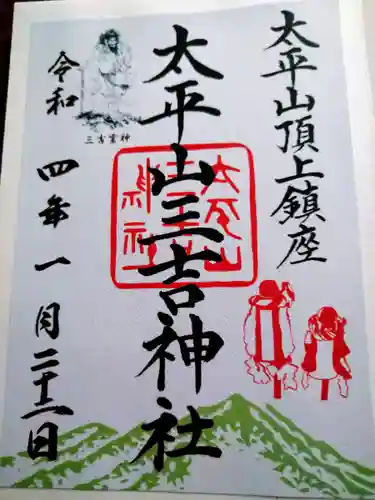 太平山頂上鎮座
太平山三吉神社
三吉霊神
令和四年一月二十二日